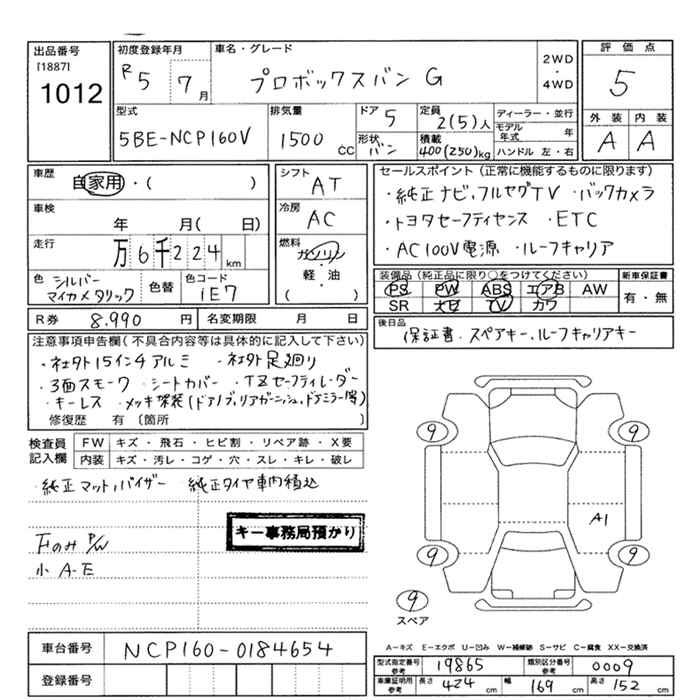 出品番号 初度登録年月 車名・グレード 2WD ・ 4WD 評価点
[1887]
1012 R5 7月 プロボックスバン G 5
型式 排気量 ドア 5 定員 2(5)人 ディーラー・並行 外装 内装
5BE-NCP160V 1500CC 形状 バン 積載 400(250)kg モデル年式 年 A A
ハンドル 左・右
車歴 シフト セールスポイント(正常に機能するものに限ります)
自家用・( ) AT ・純正ナビ,フルセグTV ・バックカメラ
車検 冷房 ・トヨタセーフティセンス ・ETC
年 月( 日) AC ・AC100V電源 ・ルーフキャリア
走行 万6千224km 燃料 ガソリン
軽・油
( )
装備品(純正品に限り○をつけてください) 新車保証書
色 シルバーマイカメタリック 色替 色コード 1E7 PS PW ABS エアB AW 有・無
SR 大ビ TV カワ
R券 8.990円 名変期限 月 日 後日品
保証書・スペアキー,ルーフキャリアキー
注意事項申告欄(不具合内容等は具体的に記入して下さい)
・社外15インチアルミ ・社外足廻り
・3面スモーク ・シートカバー ・TZセーフティレーダー
・キーレス ・メッキ架装(ドアノブ,リアガーニッシュ,ドアミラー等)
修復歴 有 〔箇所 〕
検査員記入欄 FW キズ・飛石・ヒビ割・リペア跡・X要
内装 キズ・汚レ・コゲ・穴・スレ・キレ・破レ
・純正マット,バイザー 純正タイヤ車内積込
キー事務局預かり
下のみP/W
小 A-E
9 9
A1
9 9
9
スペア
A−キズ E−エクボ U−凹み W−補修跡 S−サビ C−腐食 XX−交換済
車台番号 NCP160-0184654
型式指定番号参考 19865 類別区分番号参考 0009
登録番号 車庫証明用参考 長さ 424cm 幅 169cm 高さ 152cm